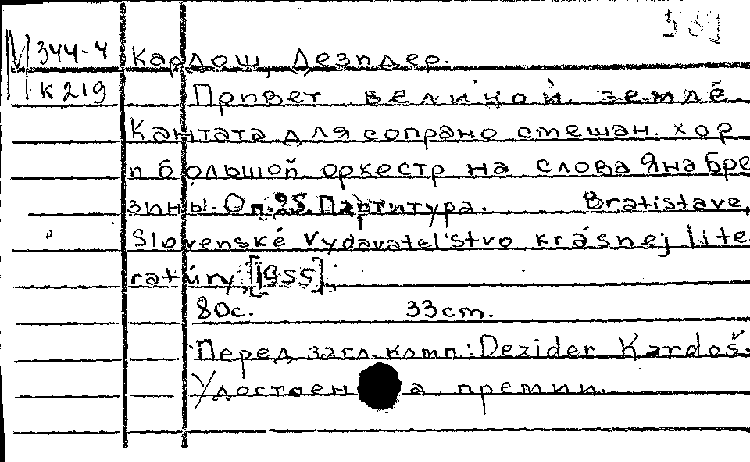 М 344-4
к 219
Кардош, Дезидер.
Привет великой земле
Кантата для сопрано смешан. хор
и большой оркестр на слова Яна Бре
зины. Оп. 25. Партитура. Bratislava,
Slovenské Vydavatel'stvo krásnej lite
ratúry, [1955].
80с. 33cm.
Перед загл. комп.: Dezider Kardoš.
Удостоен а премии.